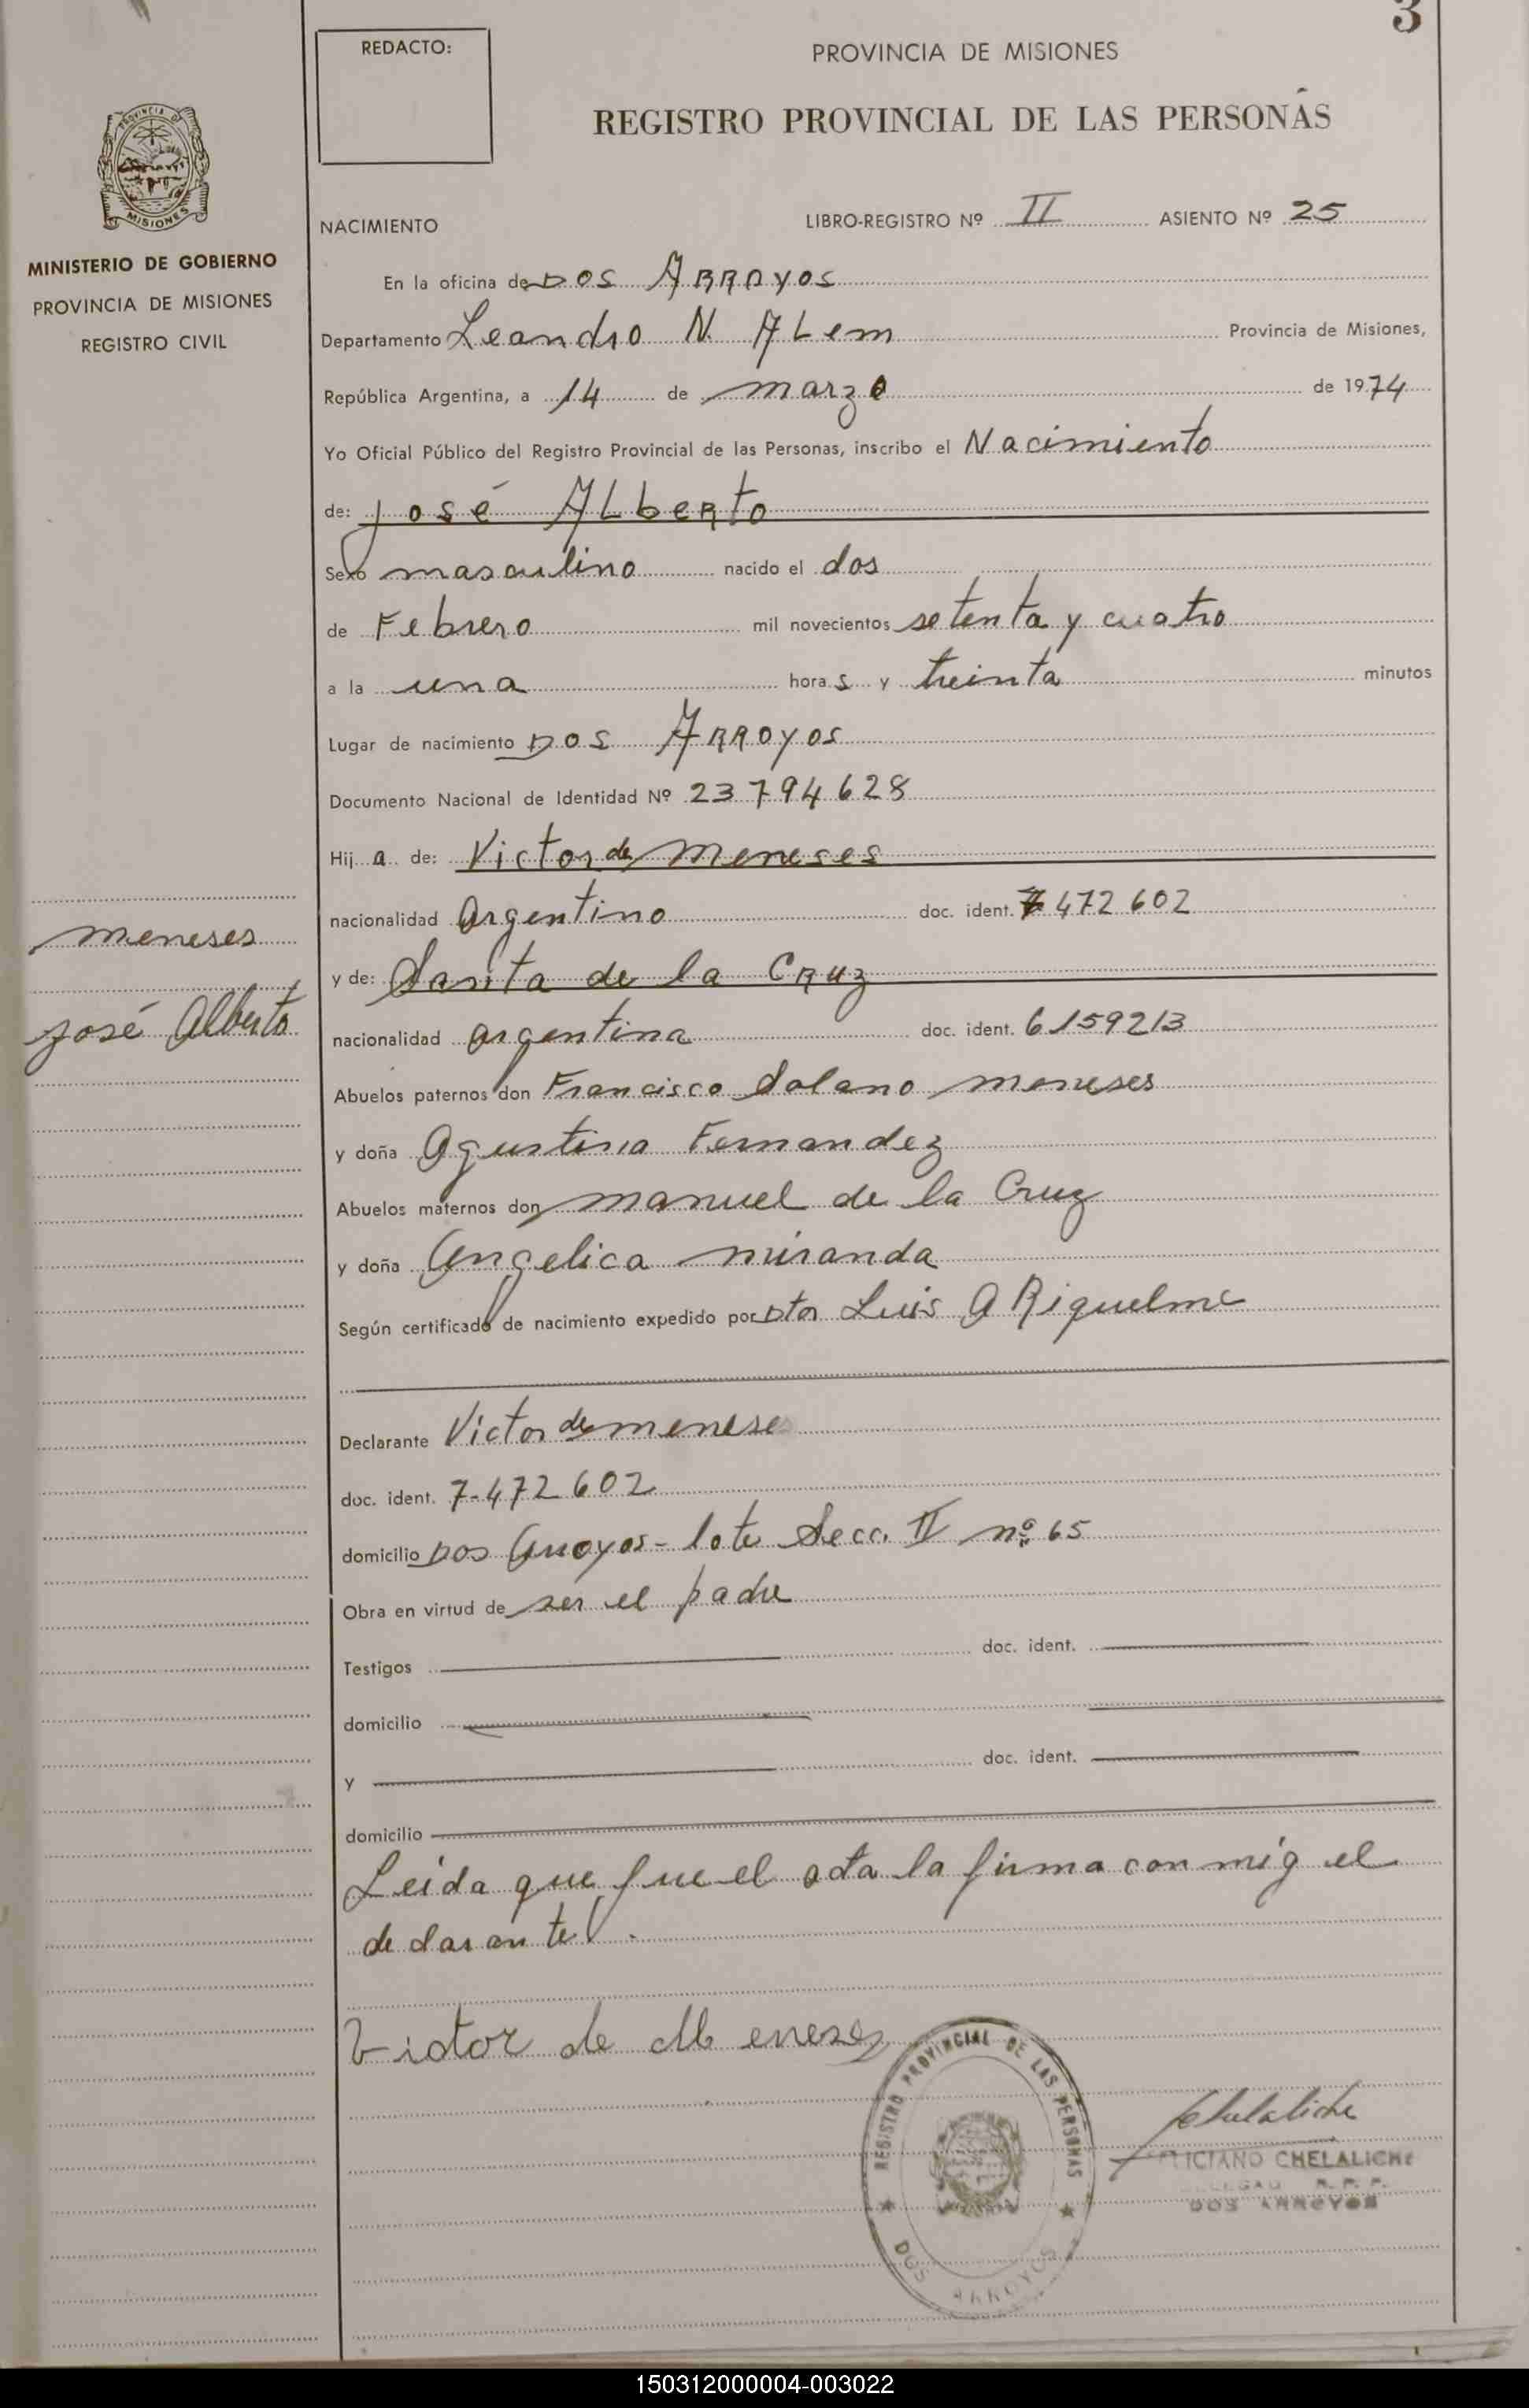 3
REDACTO:
PROVINCIA DE MISIONES
REGISTRO PROVINCIAL DE LAS PERSONAS
PROVINCIA D
MISIONES
MINISTERIO DE GOBIERNO
PROVINCIA DE MISIONES
REGISTRO CIVIL
NACIMIENTO LIBRO-REGISTRO Nº II ASIENTO Nº 25
En la oficina de DOS ARROYOS
Departamento Leandro N. ALem Provincia de Misiones,
República Argentina, a 14 de marzo de 1974
Yo Oficial Público del Registro Provincial de las Personas, inscribo el Nacimiento
de: José ALbeRto
Sexo masculino nacido el dos
de Febrero mil novecientos setenta y cuatro
a la una horas y treinta minutos
Lugar de nacimiento DOS ARROYOS
Documento Nacional de Identidad Nº 23 794 628
Hij a de: Victor de Meneses
nacionalidad Argentino doc. ident. 7 472 602
meneses
y de: Santa de la CRuz
José Alberto
nacionalidad argentina doc. ident. 6159213
Abuelos paternos don Francisco Solano meneses
y doña Agustina Fernandez
Abuelos maternos don manuel de la Cruz
y doña Angelica miranda
Según certificado de nacimiento expedido por Dtor Luis A Riquelme
Declarante Victor de menese
doc. ident. 7-472 602
domicilio DOS Arroyos - lote Secc. II nº 65
Obra en virtud de ser el padre
Testigos doc. ident.
domicilio
y doc. ident.
domicilio
Leida que fue el acta la firma con mig el
declarante.
Victor de Meneses
REGISTRO PROVINCIAL DE LAS PERSONAS
DOS ARROYOS
Chelaliche
ICIANO CHELALICHE
R. P. P.
DOS ARROYOS
150312000004-003022